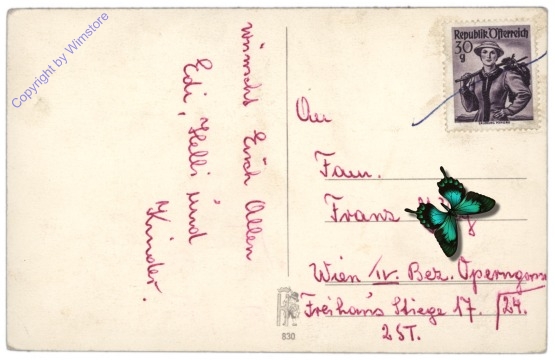 Copyright by Wimstore
wünscht Euch Allen
Edi, Helli und
Kinder.
Republik Österreich
30
g
An
Fam.
Franz
Wien IV. Bez. Operngasse
Freihaus Stiege 17. 24.
2 ST.
830